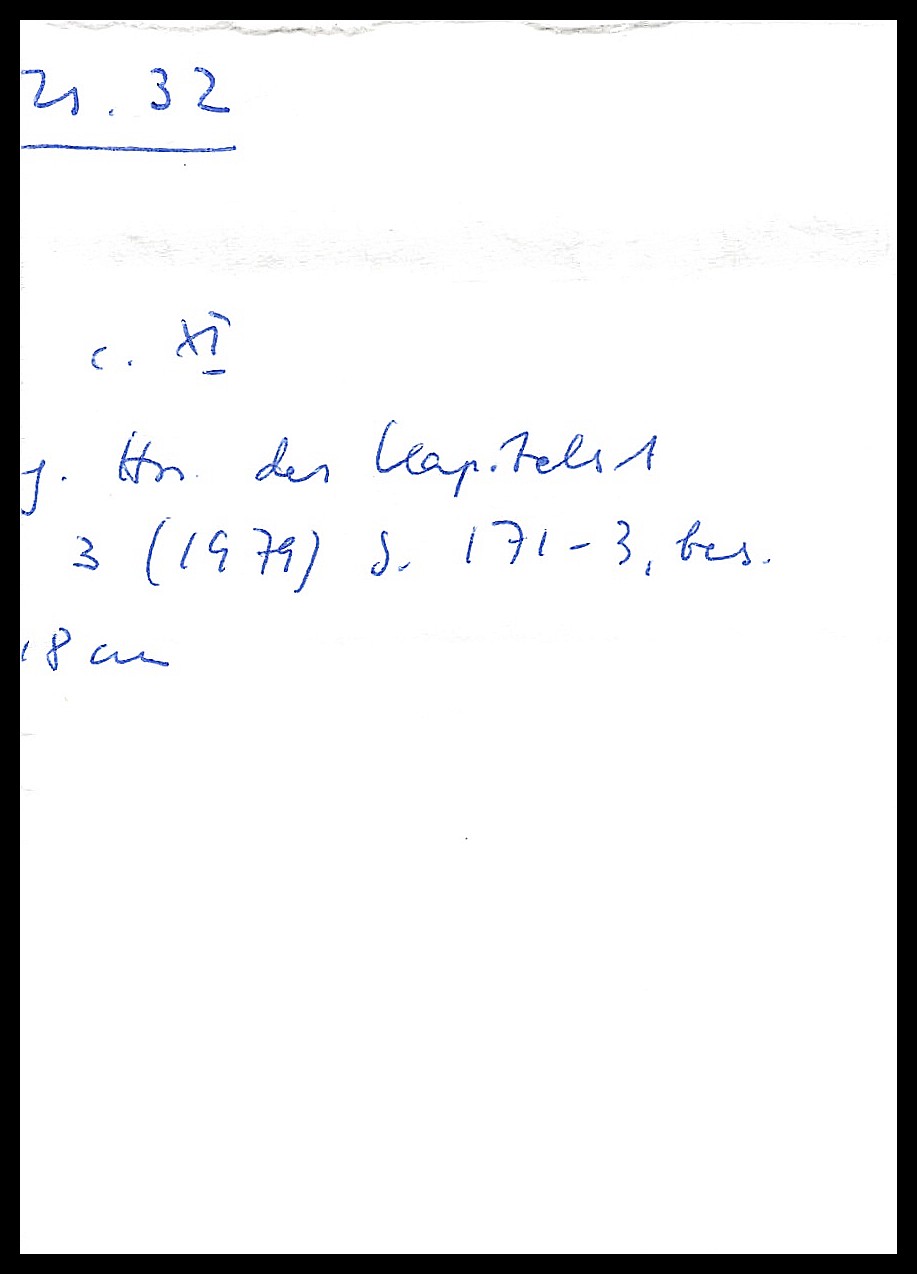 Zs. 32
c. XI
g. Hss. des Kapitels 1
3 (1979) S. 171-3, bes.
18 cm